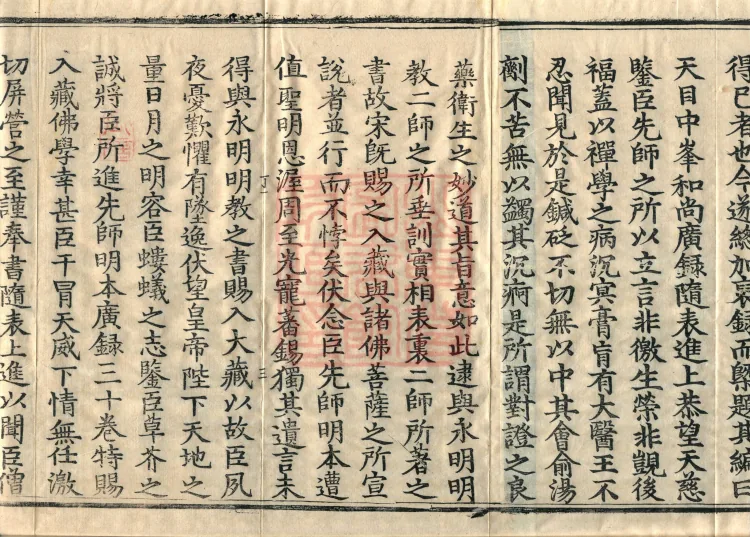 得已者也今遂終加裒録而槩題其編曰
天目中峯和尚廣録隨表進上恭望天慈
鑒臣先師之所以立言非徼生榮非覬後
福蓋以禪學之病沉冥膏肓有大醫王不
忍聞見於是鍼砭不切無以中其會俞湯
劑不苦無以蠲其沉痾是所謂對證之良
藥衛生之妙道其旨意如此逮與永明明
教二師之所垂訓實相表裏二師所著之
書故宋旣賜之入藏與諸佛菩薩之所宣
說者並行而不悖矣伏念臣先師明本遭
值聖明恩渥周至光寵蕃錫獨其遺言未
得與永明明教之書賜入大藏以故臣夙
夜憂歎懼有墜逸伏望皇帝陛下天地之
量日月之明容臣螻蟻之志鑒臣草芥之
誠將臣所進先師明本廣録三十卷特賜
入藏佛學幸甚臣干冒天威下情無任激
切屏營之至謹奉書隨表上進以聞臣僧